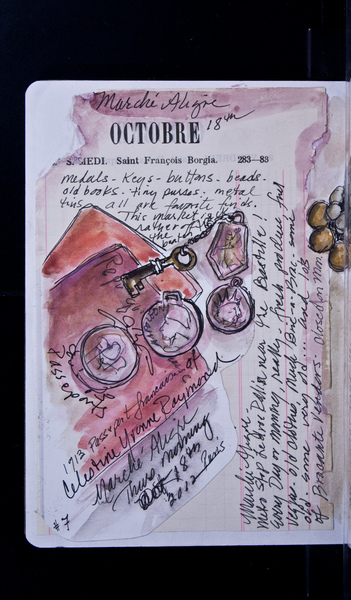 Marché Aligre
18th
OCTOBRE
SAMEDI. Saint François Borgia. 283-83
medals - keys - buttons - beads -
old books - tiny purses - metal
tins - all are favorite finds.
This market is
rather off
the
beat
finds
1913 Passport
Celestine Yvonne Raymond
Marché Aligre
Thurs morning
Oct 18th
2012 Paris
#7
Marché Aligre -
Metro Stop Ledru Rollin near the Bastille!
Every Day or morning really - Fresh produce but
also old clothes, and Bric-a-Brac, some
old - some very old - and lots
of Brocante Vendors. closed on Mon